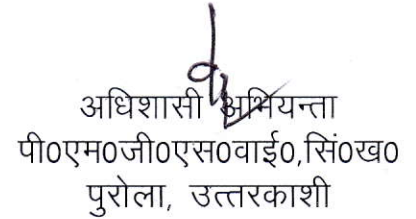 अधिशासी अभियन्ता
पी0एम0जी0एस0वाई0,सिं0ख0
पुरोला, उत्तरकाशी